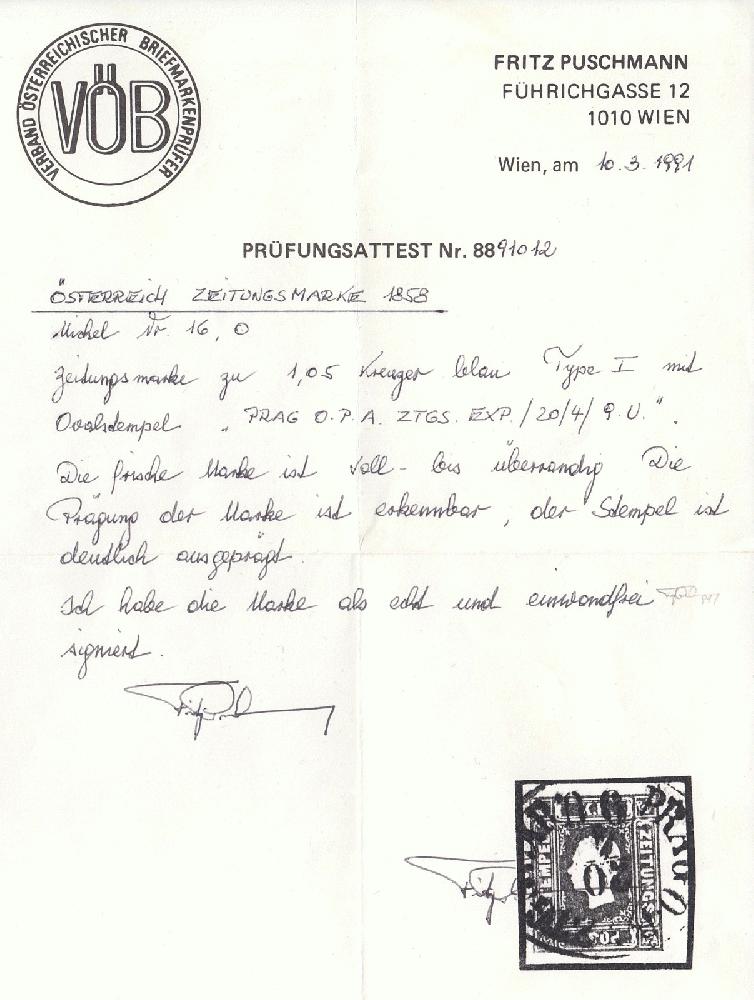 VERBAND ÖSTERREICHISCHER BRIEFMARKENPRÜFER
VÖB
FRITZ PUSCHMANN
FÜHRICHGASSE 12
1010 WIEN
Wien, am 10.3.1991
PRÜFUNGSATTEST Nr. 8891012
ÖSTERREICH ZEITUNGSMARKE 1858
Michel Nr. 16, O
Zeitungsmarke zu 1,05 Kreuzer blau Type I mit
Ovalstempel „PRAG O.P.A. ZTGS. EXP./20/4/9.U.".
Die frische Marke ist voll- bis überrandig Die
Prägung der Marke ist erkennbar, der Stempel ist
deutlich ausgeprägt.
Ich habe die Marke als echt und einwandfrei
signiert.
PRAG O
STEMPEL
ZEITUNGS
20